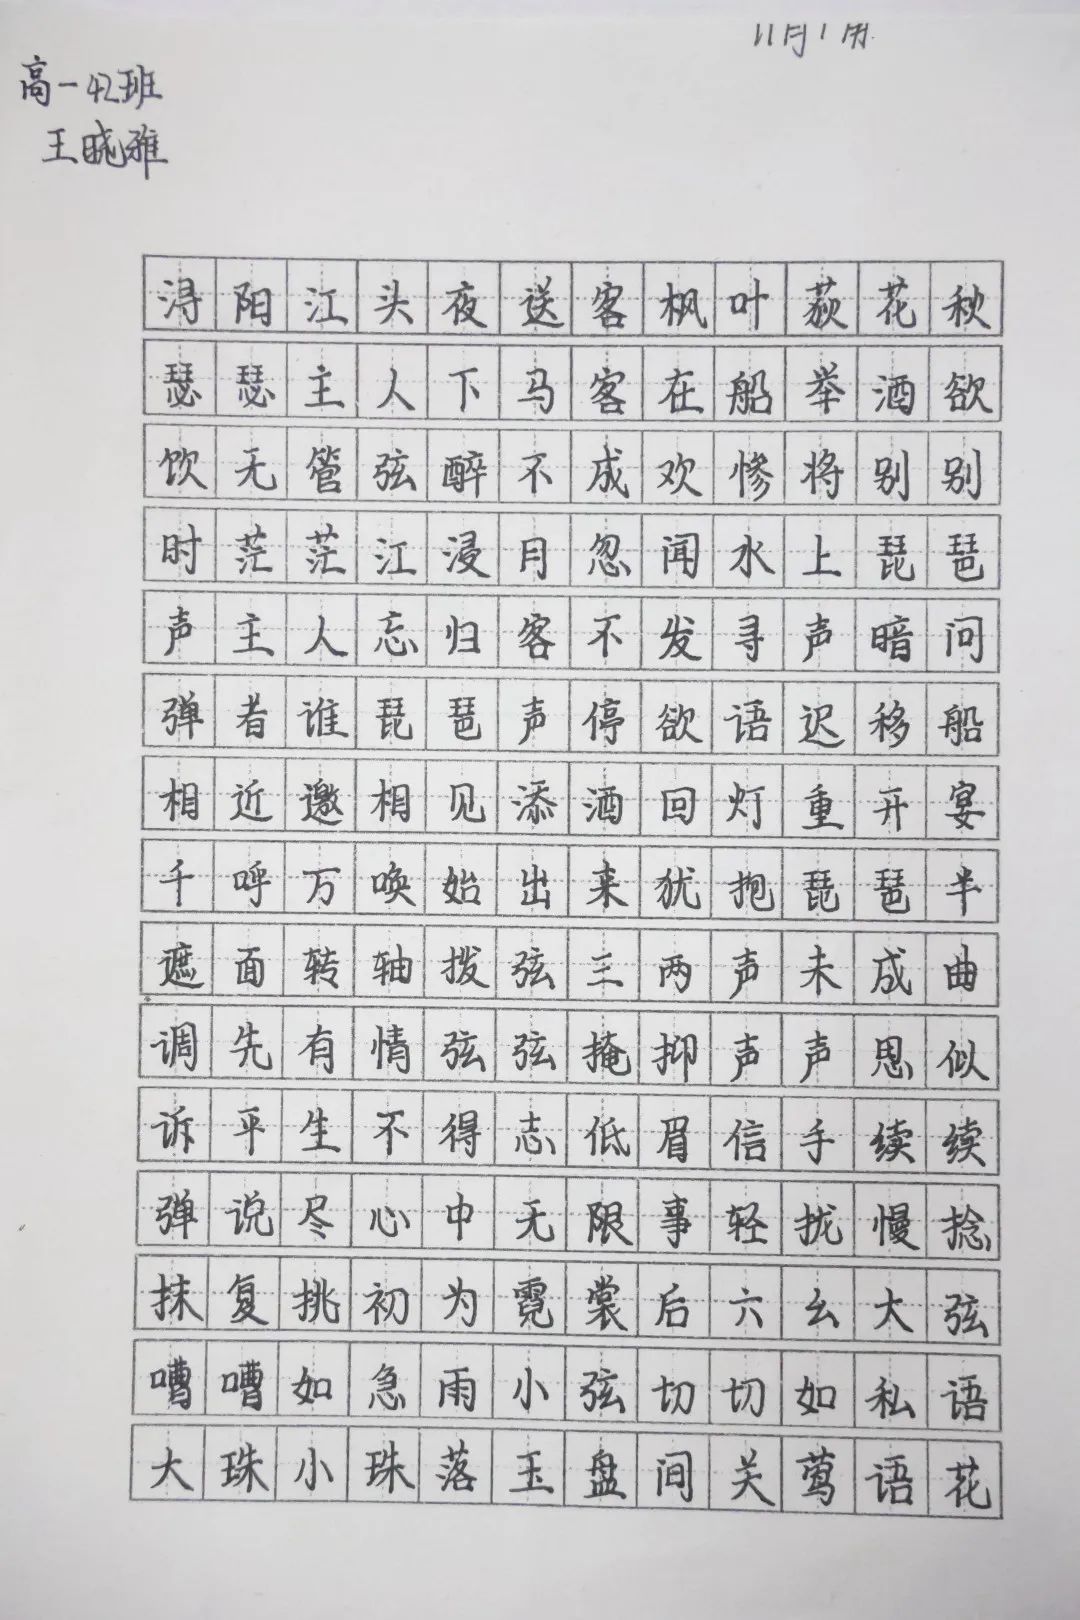 11月1
高一42班
王晓雅
浔阳江头夜送客枫叶荻花秋
瑟瑟主人下马客在船举酒欲
饮无管弦醉不成欢惨将别别
时茫茫江浸月忽闻水上琵琶
声主人忘归客不发寻声暗问
弹者谁琵琶声停欲语迟移船
相近邀相见添酒回灯重开宴
千呼万唤始出来犹抱琵琶半
遮面转轴拨弦三两声未成曲
调先有情弦弦掩抑声声思似
诉平生不得志低眉信手续续
弹说尽心中无限事轻拢慢捻
抹复挑初为霓裳后六幺大弦
嘈嘈如急雨小弦切切如私语
大珠小珠落玉盘间关莺语花